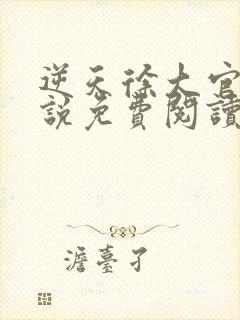 逆天徐大官
說免費閱讀
澹臺孑